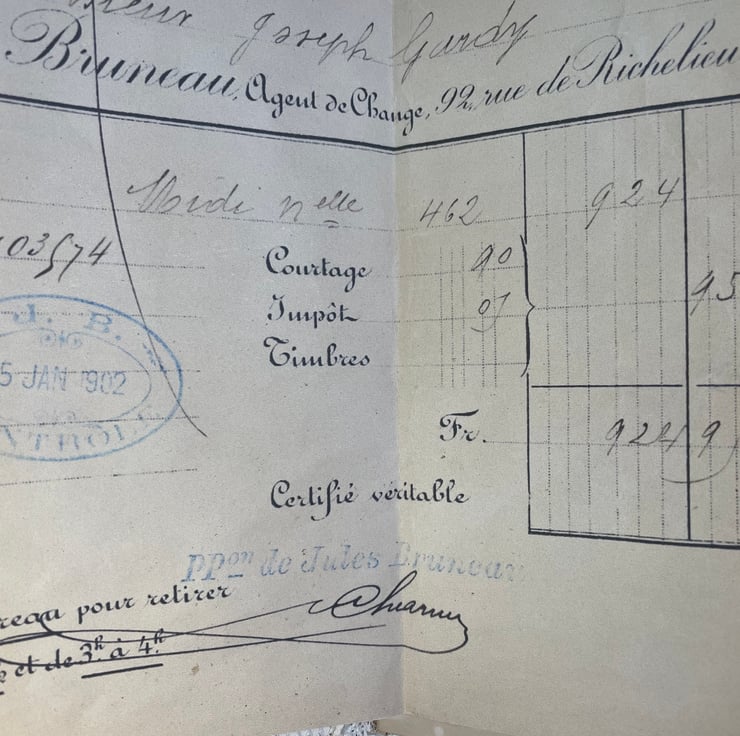 Joseph Gardy
Bruneau, Agent de Change, 92, rue de Richelieu
Midi nelle 462 924
03574
Courtage 90
Impôt 05 95
Timbres
J. B.
5 JAN 1902
Fr. 924 9
Certifié véritable
ppon de Jules Bruneau
reau pour retirer
et de 3h à 4h